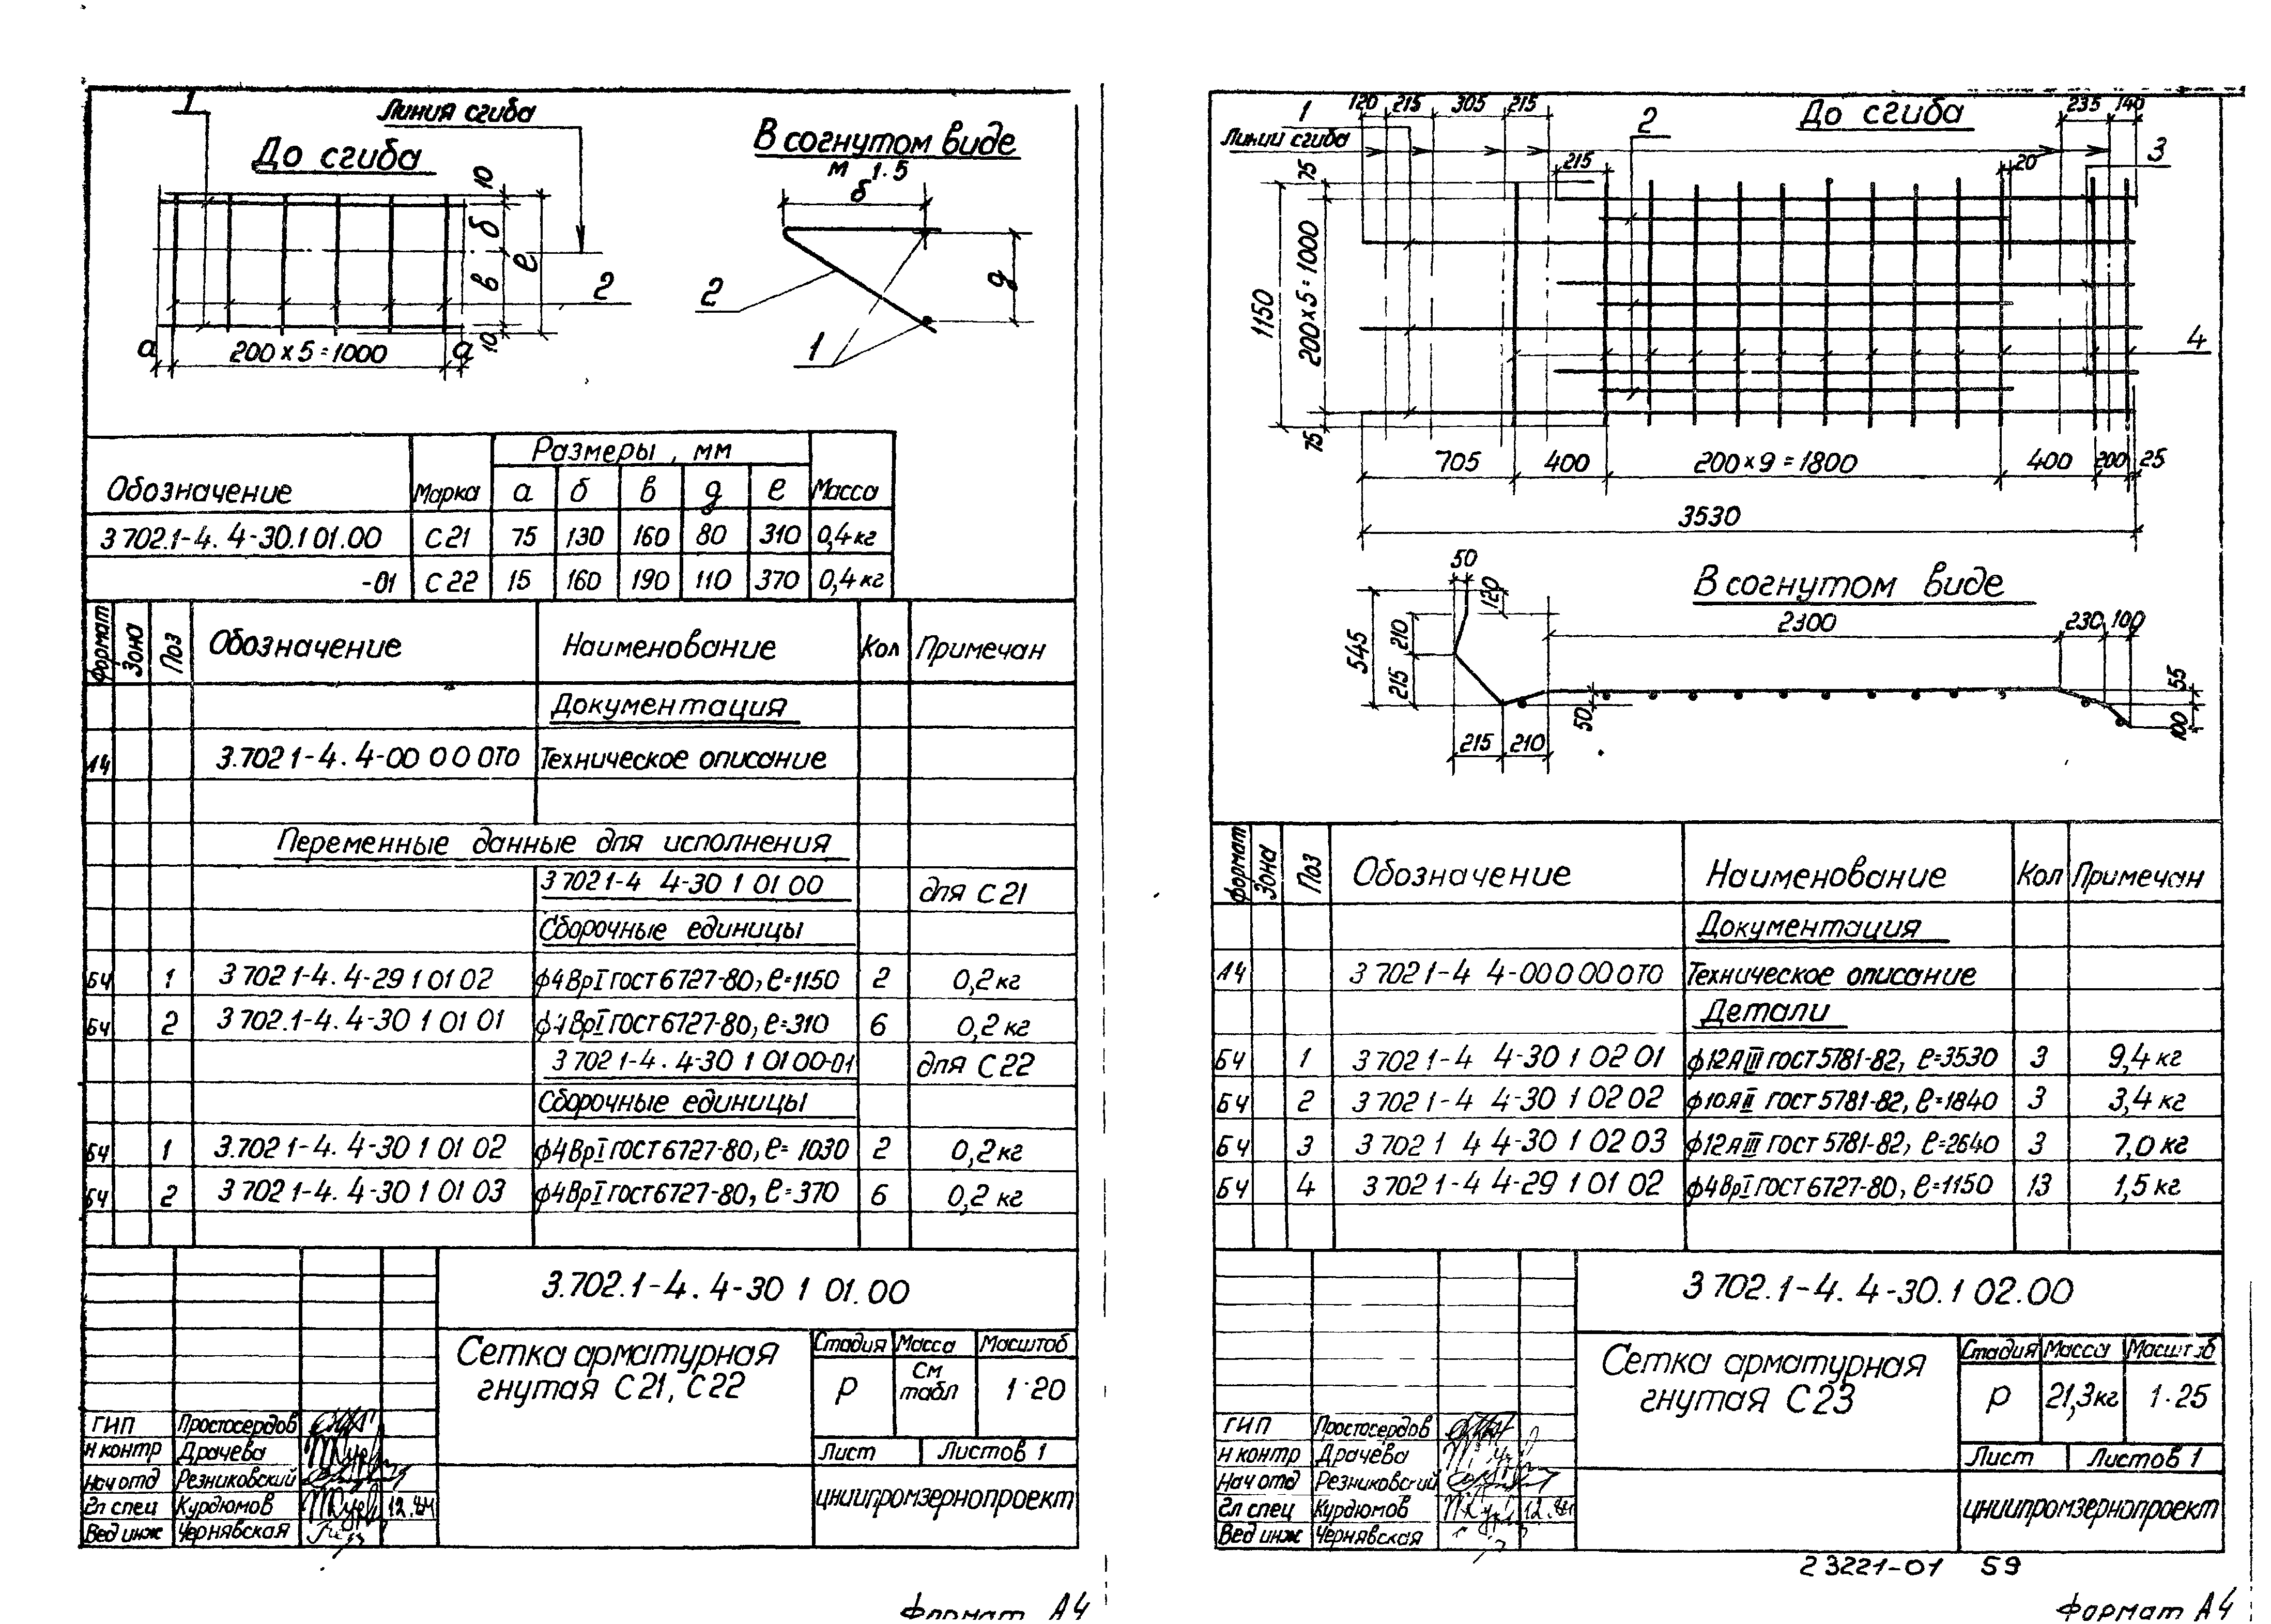 1
Линия сгиба
До сгиба
В согнутом виде
М 1·5
10
б
в
е
10
2
а
200×5=1000
а
б
2
1
д
Обозначение
Марка
Размеры, мм
Масса
а б в д е
3 702.1-4. 4-30.1 01.00 С21 75 130 160 80 310 0,4 кг
-01 С22 15 160 190 110 370 0,4 кг
Формат Зона Поз Обозначение Наименование Кол Примечан
Документация
А4 3.702 1-4. 4-00 0 0 0ТО Техническое описание
Переменные данные для исполнения
3 702 1-4 4-30 1 01 00 для С21
Сборочные единицы
БЧ 1 3 702 1-4. 4-29 1 01 02 ф4ВрI ГОСТ 6727-80, ℓ=1150 2 0,2 кг
БЧ 2 3 702.1-4. 4-30 1 01 01 ф4ВрI ГОСТ 6727-80, ℓ=310 6 0,2 кг
3 702 1-4. 4-30 1 01 00-01 для С22
Сборочные единицы
БЧ 1 3.702 1-4. 4-30 1 01 02 ф4ВрI ГОСТ 6727-80, ℓ= 1030 2 0,2 кг
БЧ 2 3 702 1-4. 4-30 1 01 03 ф4ВрI ГОСТ 6727-80, ℓ=370 6 0,2 кг
3.702.1-4. 4-30 1 01.00
Сетка арматурная
гнутая С21, С22
Стадия Масса Масштаб
Р См табл 1·20
Лист Листов 1
ГИП Простосердов
Н контр Драчева
Нач отд Резниковский
Гл спец Курдюмов 12.84
Вед инж Чернявская
ЦНИИпромзернопроект
Формат А4
1
Линии сгиба
120 215 305 215
2
До сгиба
235 140
3
215
20
75
200×5=1000
1150
75
4
705 400 200×9=1800 400 200 25
3530
В согнутом виде
50
120
210
545
215
2300
230 100
50
55
100
215 210
Формат Зона Поз Обозначение Наименование Кол Примечан
Документация
А4 3 702 1-4 4-00 0 00 0ТО Техническое описание
Детали
БЧ 1 3 702 1-4 4-30 1 02 01 ф12АIII ГОСТ 5781-82, ℓ=3530 3 9,4 кг
БЧ 2 3 702 1-4 4-30 1 02 02 ф10АII ГОСТ 5781-82, ℓ=1840 3 3,4 кг
БЧ 3 3 702 1 4 4-30 1 02 03 ф12АIII ГОСТ 5781-82, ℓ=2640 3 7,0 кг
БЧ 4 3 702 1-4 4-29 1 01 02 ф4ВрI ГОСТ 6727-80, ℓ=1150 13 1,5 кг
3 702.1-4. 4-30.1 02.00
Сетка арматурная
гнутая С23
Стадия Масса Масштаб
Р 21,3кг 1·25
Лист Листов 1
ГИП Простосердов
Н контр Драчева
Нач отд Резниковский
Гл спец Курдюмов 12.84
Вед инж Чернявская
ЦНИИпромзернопроект
23221-01 59
Формат А4